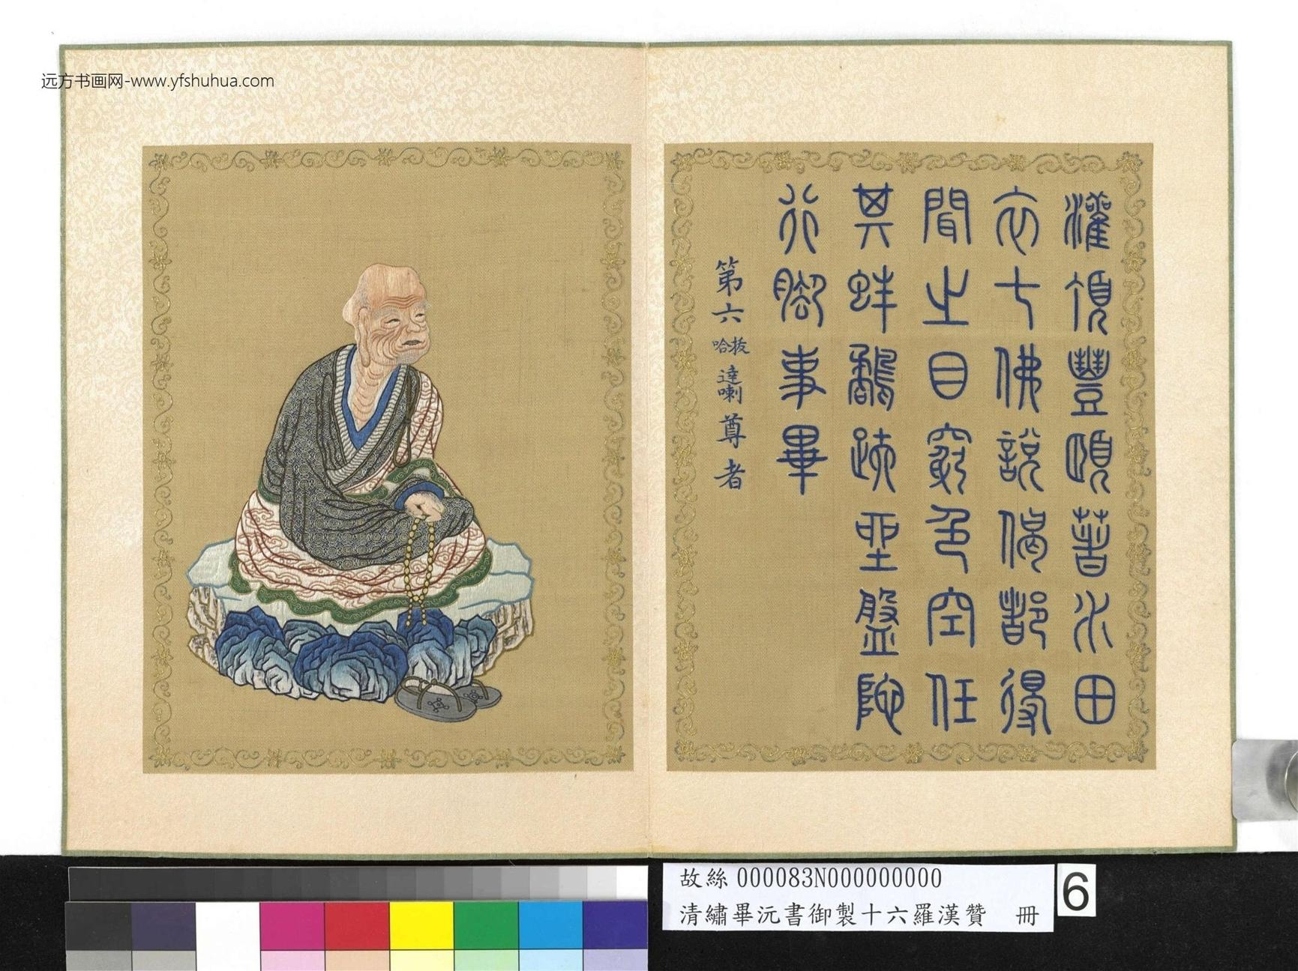 远方书画网-www.yfshuhua.com
灌頂豐頤著水田
衣七佛說偈都得
聞之目窮色空任
其蚌鷸跡聖盤陀
行腳事畢
第六拔哈達喇尊者
故絲000083N000000000
清繡畢沅書御製十六羅漢贊 冊
6